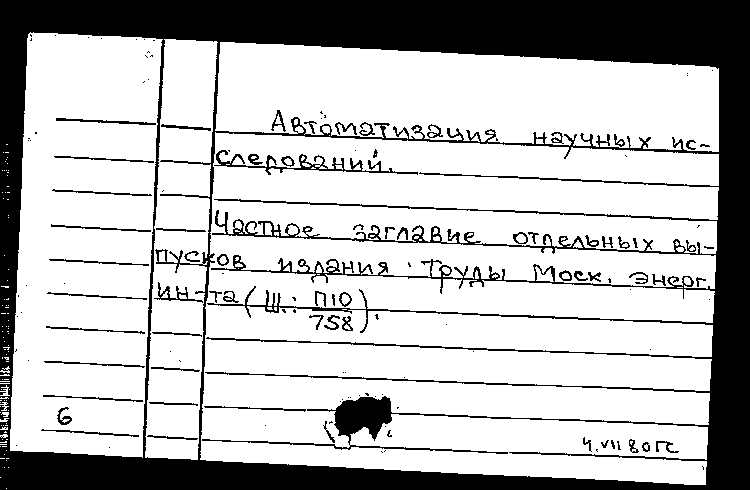 Автоматизация научных ис-
следований.
Частное заглавие отдельных вы-
пусков издания: Труды Моск. энерг.
ин-та (Ш.: П10/758).
6
4.VII 80 ГС